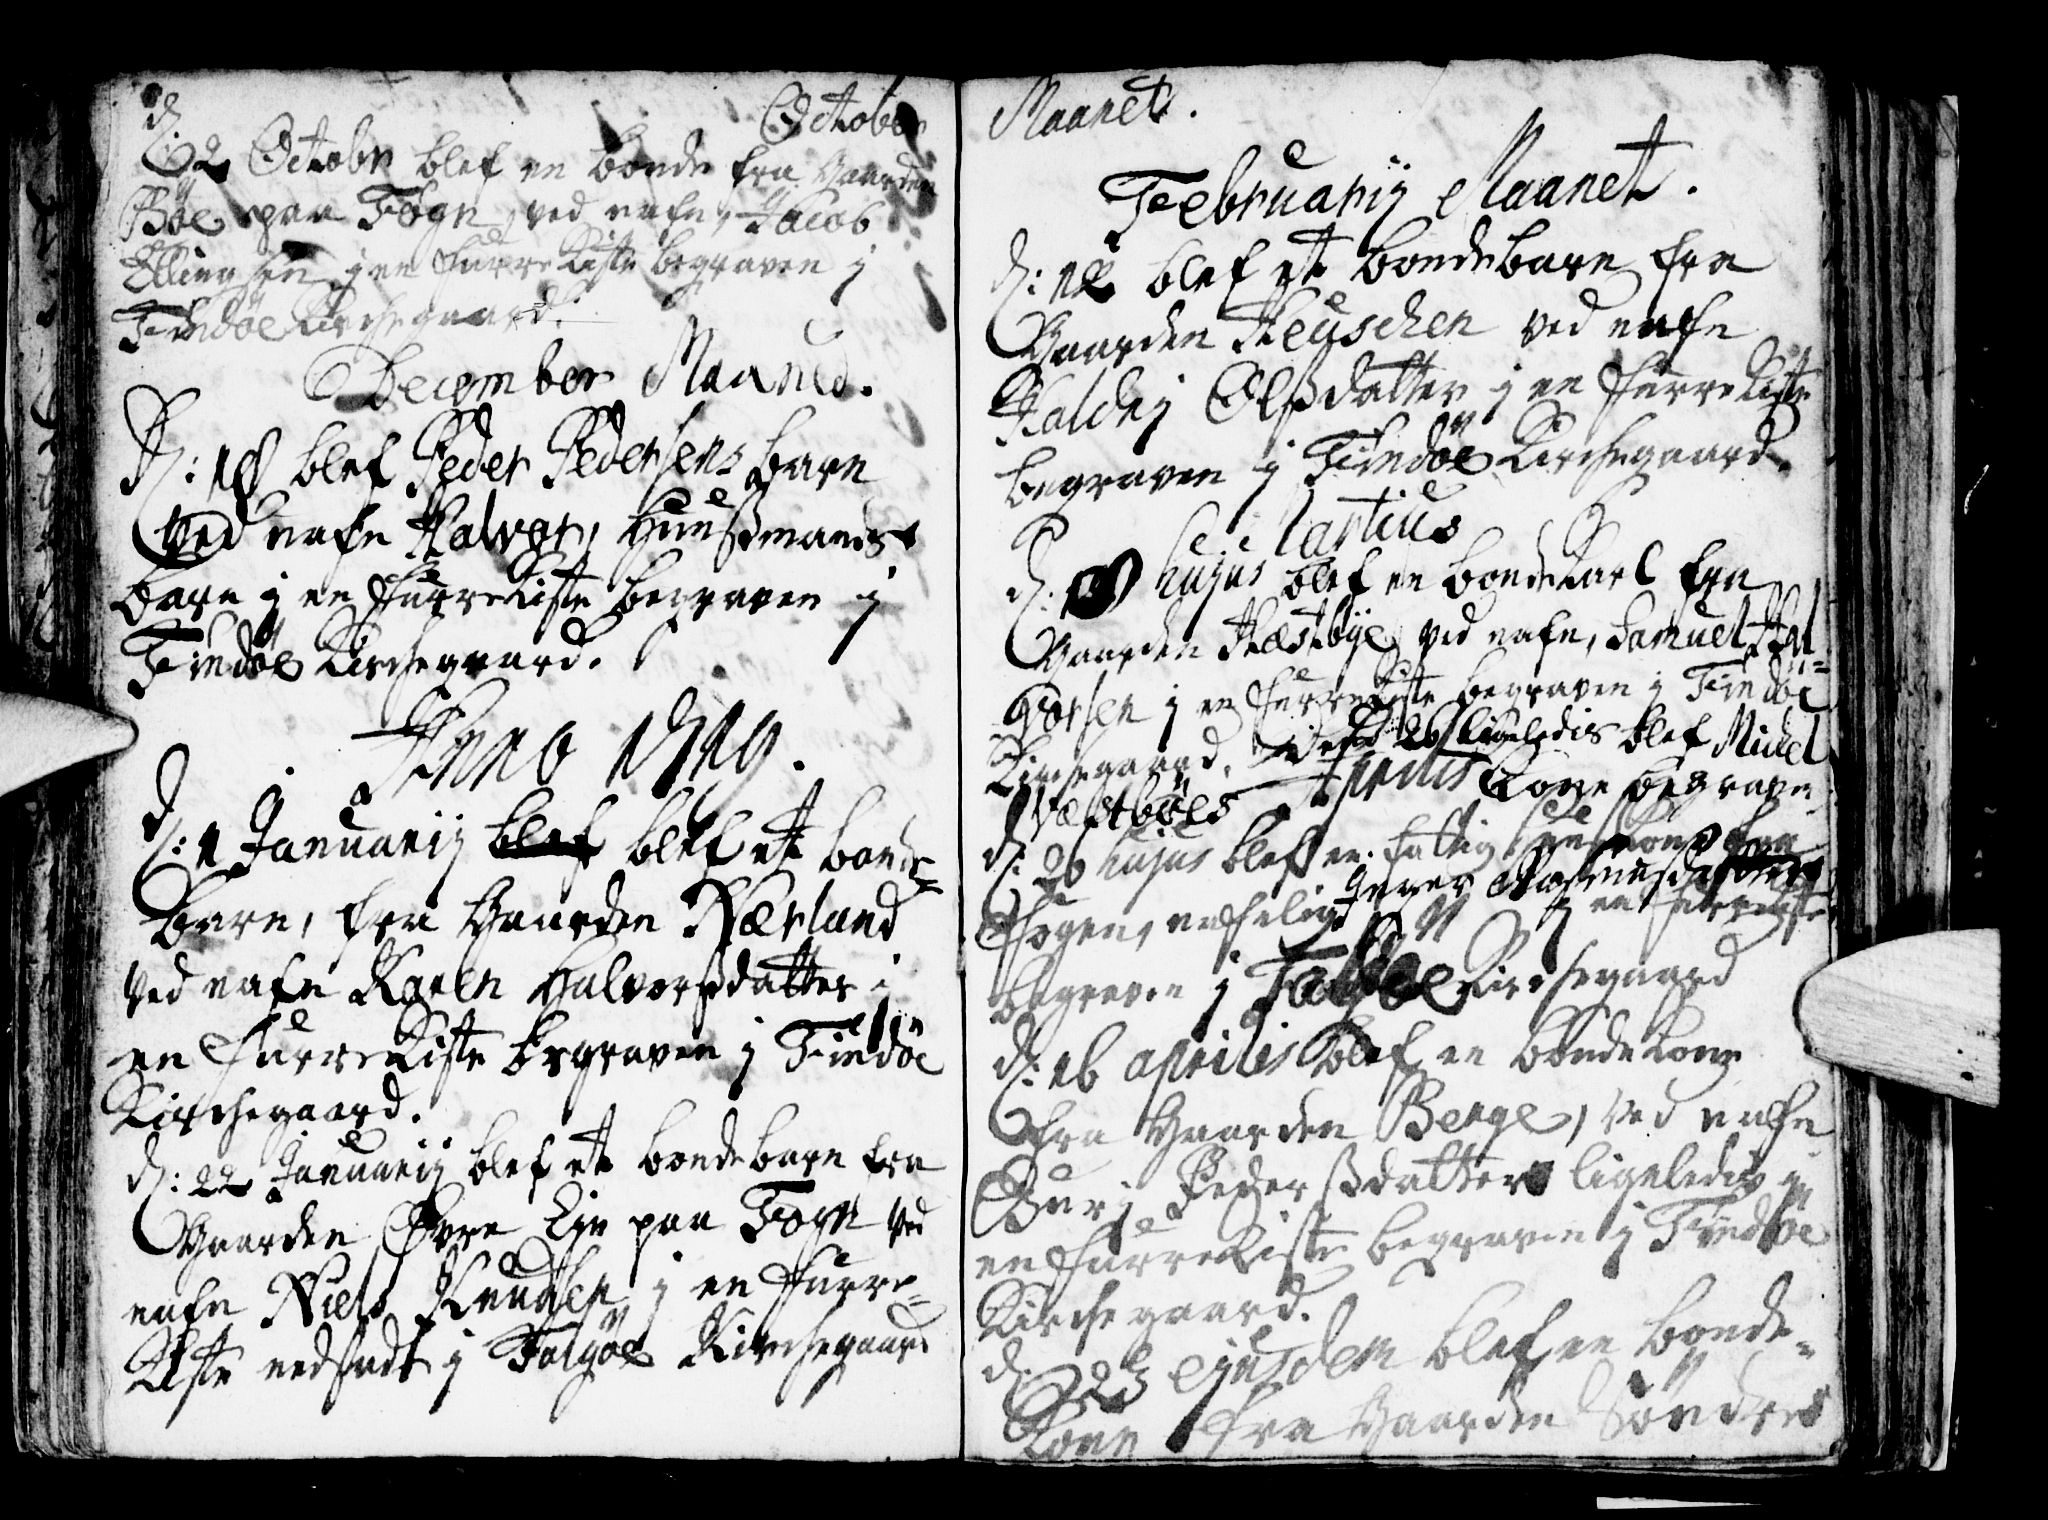 October
d: 2 Octobr blef en bonde fra Gaarden
Bøe paa Fogn, ved nafn, Jacob
Ellingsen, j en furre Kiste begraven j
Findöe Kirchegaard.
December Maaned.
D: 18 blef Peder Pedersens barn
ved nafn Halvor, Huusmands
barn j en furre Kiste begraven j
Findöe Kirchegaard.
Anno
d: 1 Januarij blef blef et bonde
barn, fra Gaarden Nærland
ved nafn Karen Halvorsdatter i
en furre Kiste begraven j Findöe
Kirchegaard.
d: 22 Januarij blef et bondebarn fra
Gaarden Øvre Eje paa Fogn ved
nafn Niels Knudsen j en furre-
Kiste nedsadt j Talgöe Kirchegaard
Maanet.
Februarij Maanet.
d: 12 blef et bondebarn fra
Gaarden Heuschen ved nafn
Halchij Olsdatter j en furre Kiste
begraven j Findöe Kirchegaard.
Martius
d: hujus blef en bonde Karl fra
Gaarden Hæstbye, ved nafn, Samuel Hal-
vorsen j en furre Kiste begraven j Findöe
Kirchegaard. ligeledis blef Michel
Væstböes Kone begraven
Aprilis
d: 26 hujus blef en fattig fra
Fogn, nafnlig Rasmusdatter
j en furre Kiste
begraven j Talgöe Kirchegaard
d: 16 aprilis blef en bonde Kone
fra Gaarden Berge, ved nafn
Gurj Pedersdatter ligeledis j
en furre Kiste begraven j Findöe
Kirchegaard.
d: 23 ejusdem blef en bonde-
Kone fra Gaarden Söndre